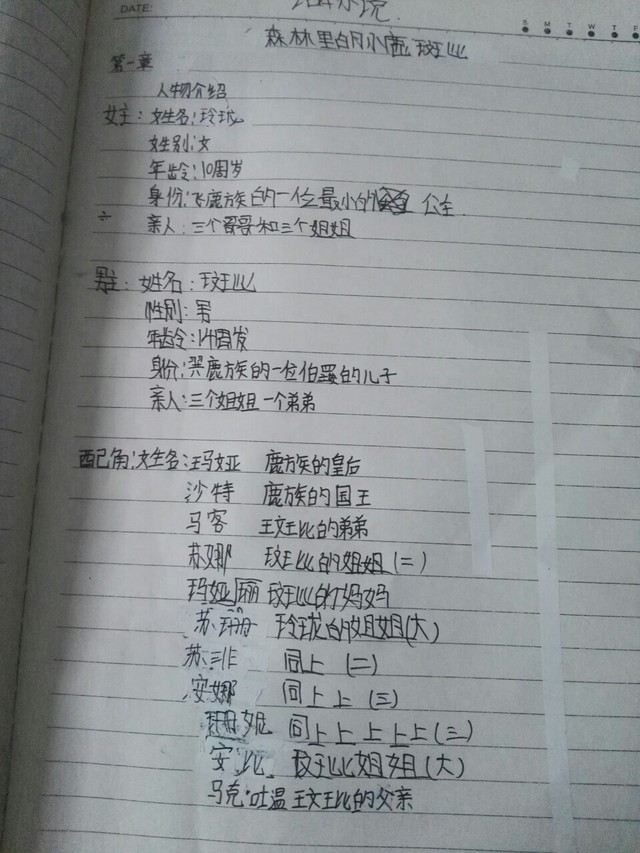 DATE:
S M T W T F
小说.
森林里的小鹿斑比
第一章
人物介绍
女主: 姓名:玲珑
姓别:女
年龄:10周岁
身份:飞鹿族的一位最小的 公主.
亲人:三个哥哥和三个姐姐
男主: 姓名:斑比
性别:男
年龄:14周岁
身份: 鹿族的一位伯爵的儿子
亲人:三个姐姐 一个弟弟
配角:姓名:玛娅 鹿族的皇后
沙特 鹿族的国王
马客 斑比的弟弟
苏娜 斑比的姐姐(二)
玛娅丽 斑比的妈妈
苏珊 玲珑的姐姐(大)
苏菲 同上 (二)
安娜 同上上 (三)
珊妮 同上上上上上(三)
安比 斑比姐姐(大)
马克·吐温 斑比的父亲